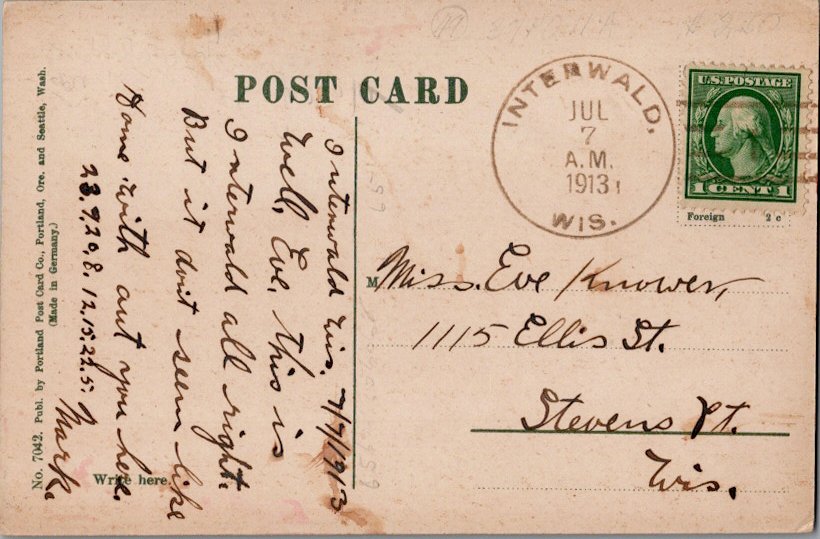 POST CARD
INTERWALD,
JUL
7
A.M.
1913
WIS.
U.S. POSTAGE
1 CENT 1
Foreign 2 c
Interwald Wis. 7/7/1913
Well, Eve, this is
Interwald all right.
But it don't seem like
Home with aut you here.
23. 9, 20, 8. 12. 15. 22. 5.
Mark.
M Miss. Eve Knower,
1115 Ellis St.
Stevens Pt.
Wis.
Write here.
No. 7042. Publ. by Portland Post Card Co., Portland, Ore. and Seattle, Wash.
(Made in Germany.)